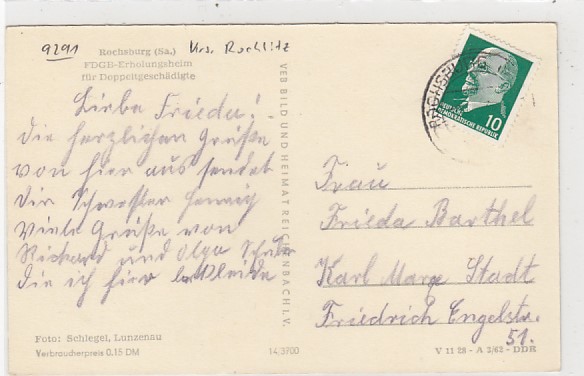 9291
Krs. Rochlitz
Rochsburg (Sa.)
FDGB-Erholungsheim
für Doppeltgeschädigte
Liebe Frieda!
die herzlichen Grüße
von hier aus sendet
Dir Schwester
Viele Grüße von
Richard und Olga
die ich hier begleide
Foto: Schlegel, Lunzenau
Verbraucherpreis 0,15 DM
VEB BILD UND HEIMAT REICHENBACH I. V.
14/3700
ROCHSBURG
10
DEUTSCHE
DEMOKRATISCHE REPUBLIK
Frau
Frieda Barthel
Karl Marx Stadt
Friedrich Engelstr.
51.
V 11 28 - A 2/62 - DDR